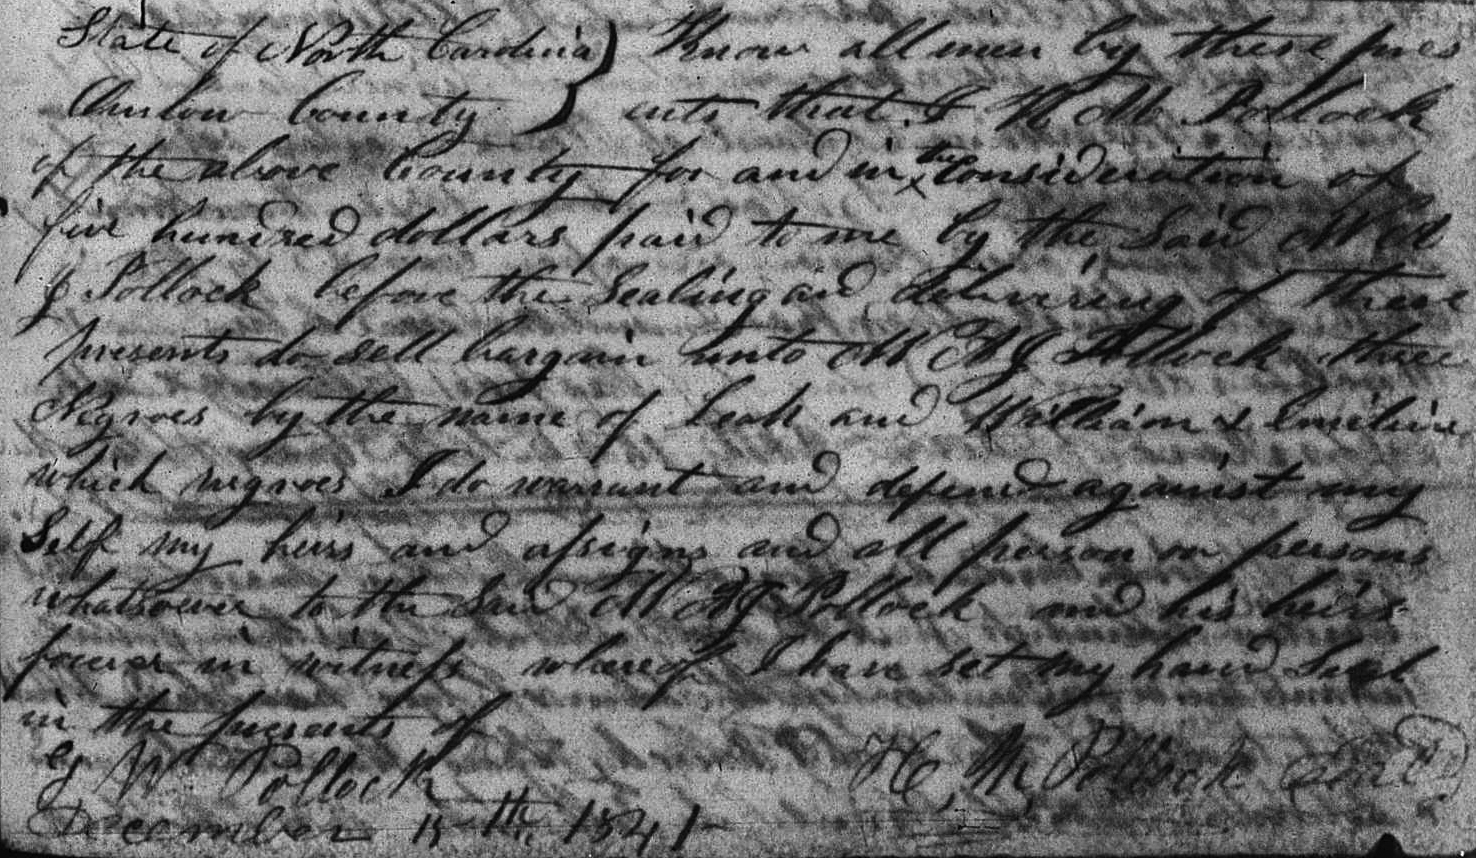 State of North Carolina) Know all men by these pres
Onslow County ) ents that I H M Pollock
of the above County for and in the Consideration of
five hundred dollars paid to me by the Said
J Pollock before the Sealing and delivering of these
presents do sell bargain unto M A J Pollock three
Negroes by the name of Leah and William & Emeline
which negroes I do warrant and defend against my
Self my heirs and assigns and all person or persons
whatsoever to the Said M A J Pollock and his heirs
forever in witness whereof I have set my hand Seal
in the presents of
G W Pollock H, M, Pollock Seal
December 15th 1841